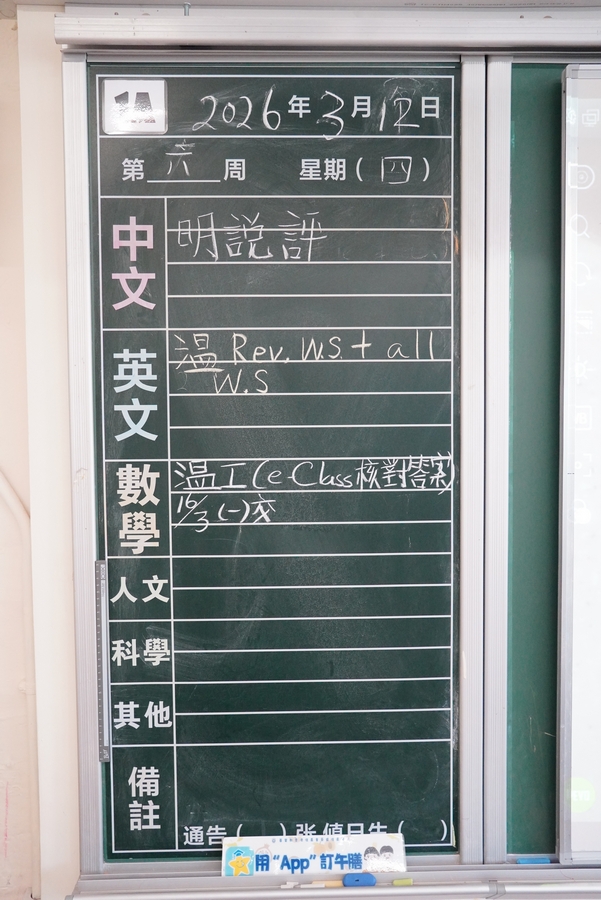 1A
2026年3月12日
第六周 星期(四)
中文
明説評
英文
温 Rev. W.S + all
W.S
數學
温工(e-Class核對答案)
16/3 (一)交
人文
科學
其他
備註
通告( )张 值日生( )
用“App”訂午膳